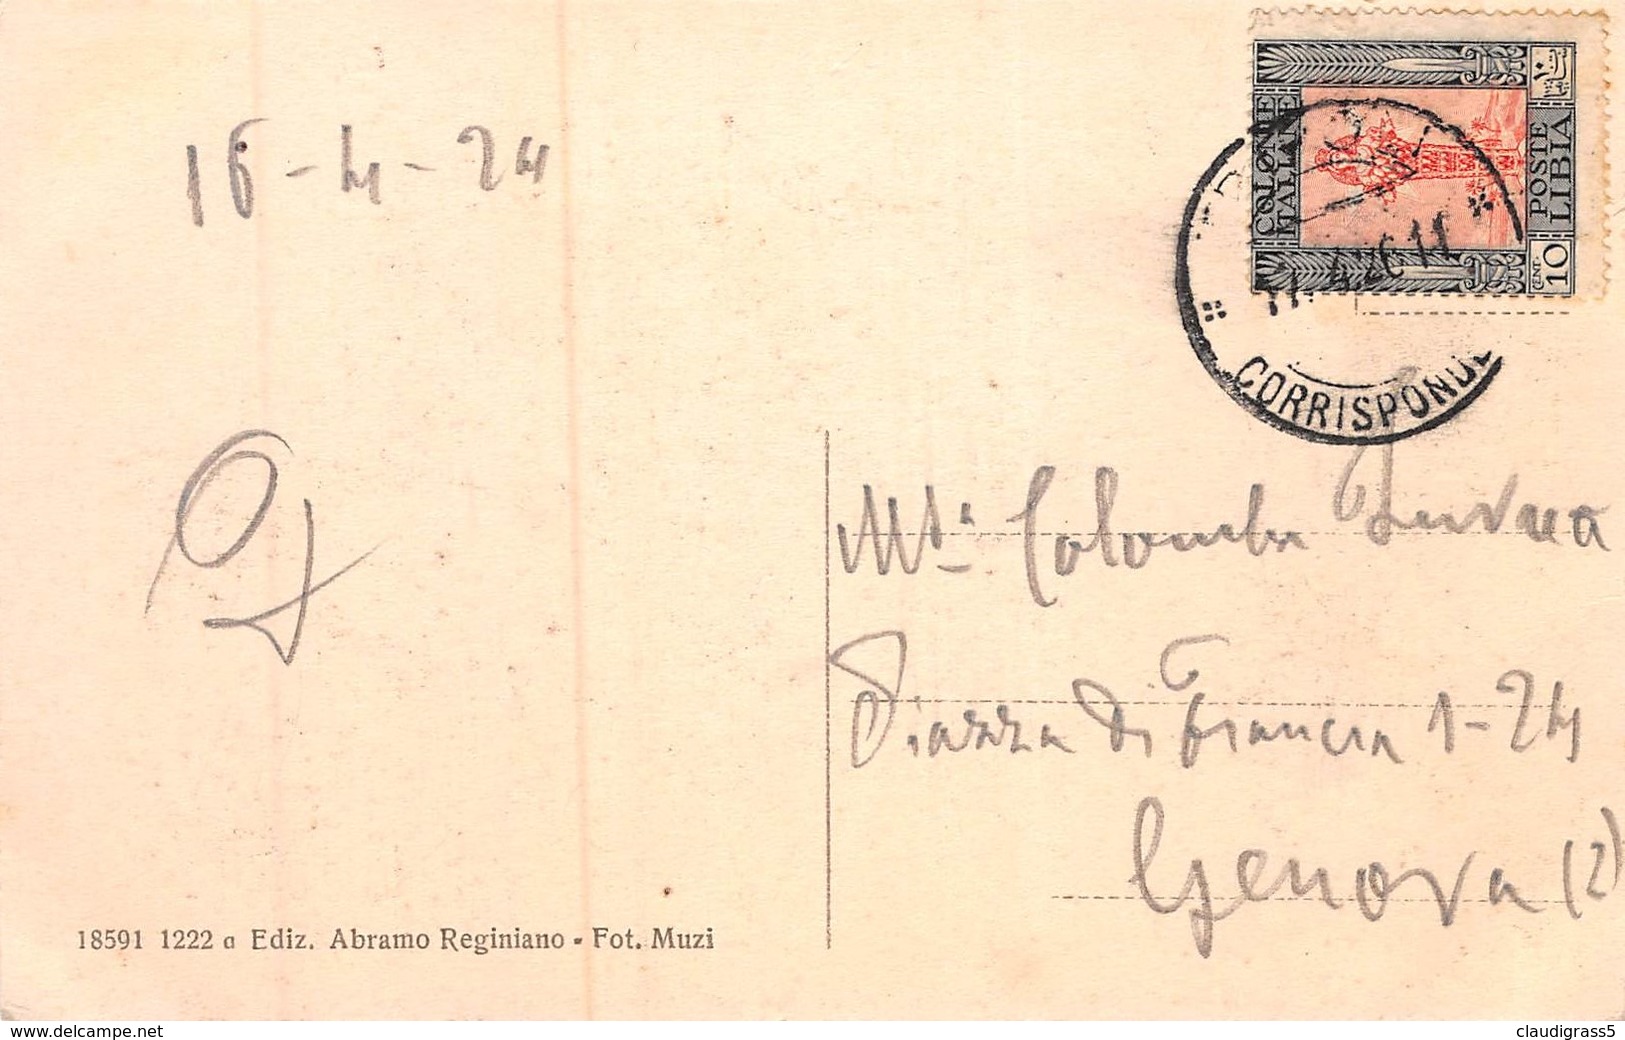 16-4-24
COLONIE
ITALIANE
POSTE
LIBIA
CENT. 10
17. 4. 11
CORRISPOND
Colomba
Piazza di Francia 1-24
Genova (2)
18591 1222 a Ediz. Abramo Reginiano - Fot. Muzi
www.delcampe.net
claudigrass5